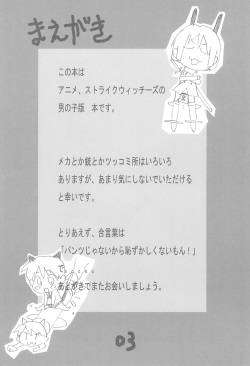 まえがき
この本は
アニメ、ストライクウィッチーズの
男の子版　本です。
メカとか銃とかツッコミ所はいろいろ
ありますが、あまり気にしないでいただける
と幸いです。
とりあえず、合言葉は
「パンツじゃないから恥ずかしくないもん！」
で。。。。。
あとがきでまたお会いしましょう。
03